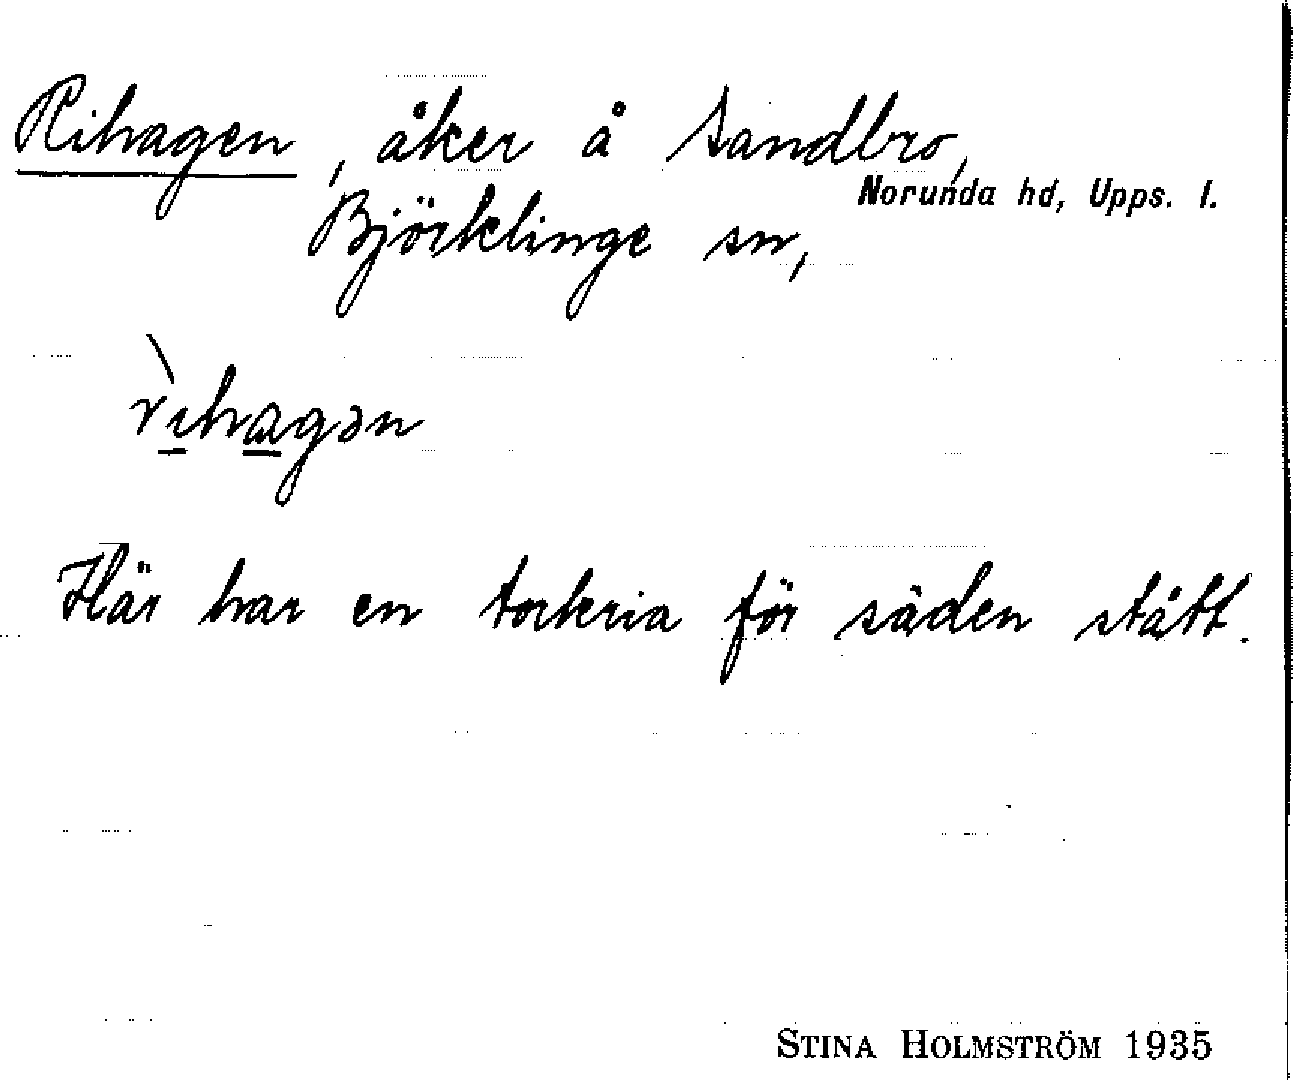 Rihagen, åker å Sandbro,
Norunda hd, Upps. l.
Björklinge sn,
rìhagən
Här har en torkria för säden stått.
STINA HOLMSTRÖM 1935